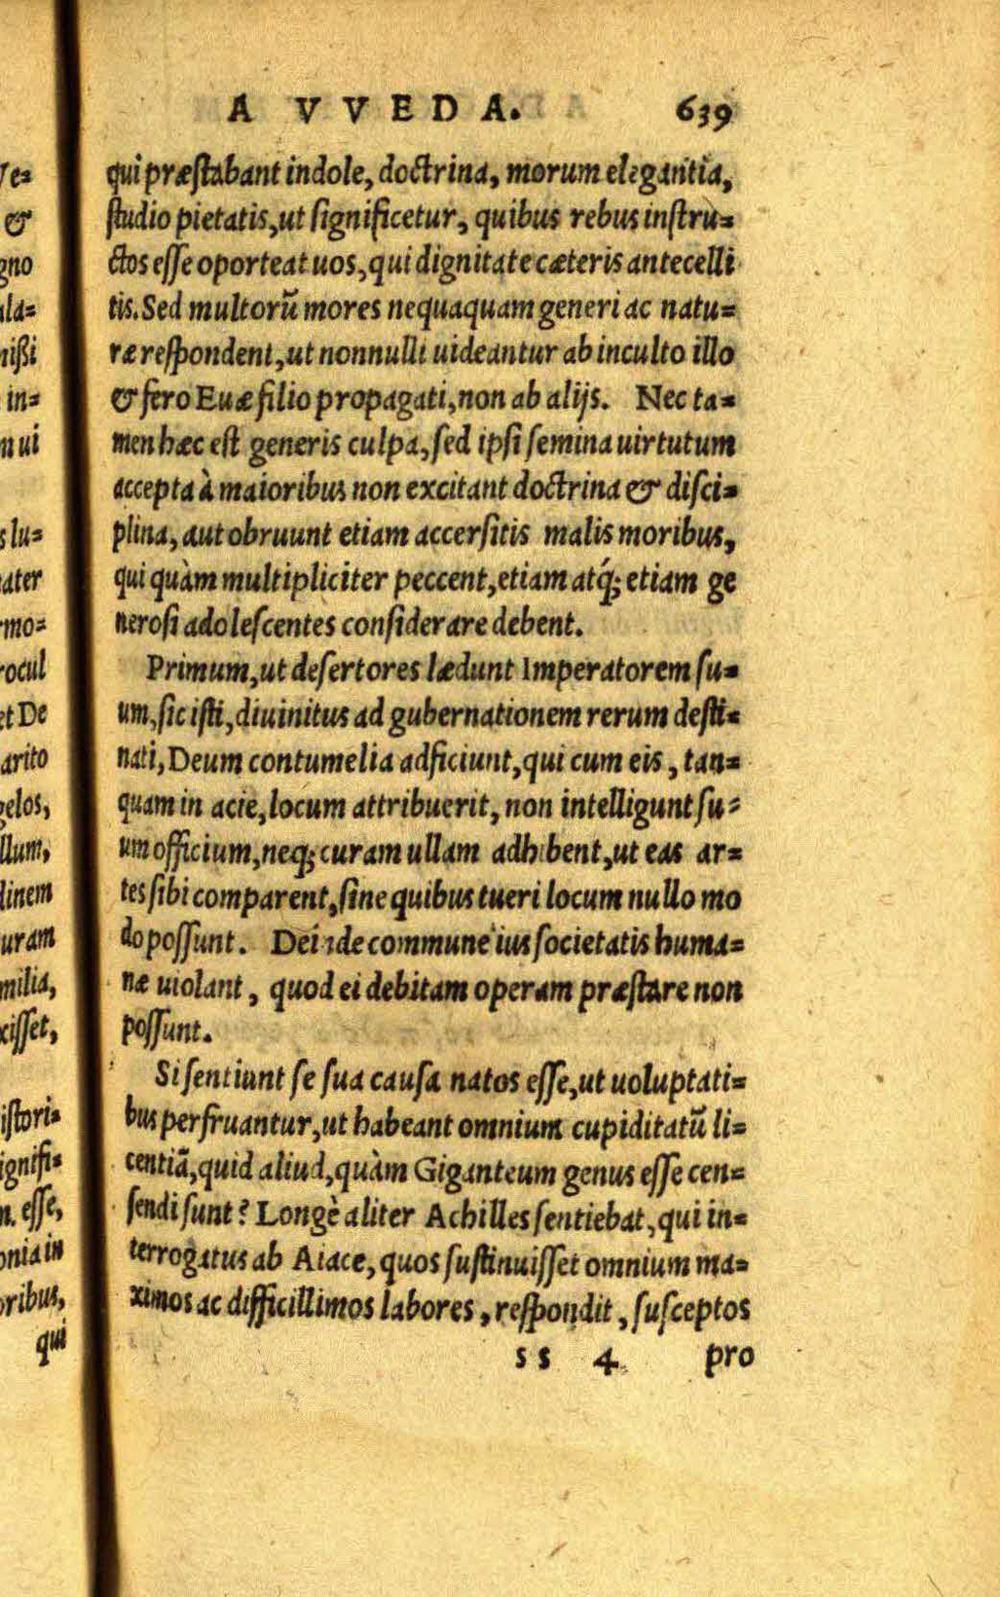 A VVEDA. 639
qui præstabant indole, doctrina, morum elegantia,
studio pietatis, ut significetur, quibus rebus instru=
ctos esse oporteat uos, qui dignitate cæteris antecelli
tis. Sed multorũ mores nequaquam generi ac natu=
ræ respondent, ut nonnulli uideantur ab inculto illo
& fero Euæ filio propagati, non ab alijs. Nec ta=
men hæc est generis culpa, sed ipsi semina uirtutum
accepta à maioribus non excitant doctrina & disci=
plina, aut obruunt etiam accersitis malis moribus,
qui quàm multipliciter peccent, etiam atq́; etiam ge
nerosi adolescentes considerare debent.
Primum, ut desertores lædunt Imperatorem su=
um, sic isti, diuinitus ad gubernationem rerum desti=
nati, Deum contumelia adficiunt, qui cum eis, tan=
quam in acie, locum attribuerit, non intelligunt su=
um officium, neq; curam ullam adhibent, ut eas ar=
tes sibi comparent, sine quibus tueri locum nullo mo
do possunt. Deinde commune ius societatis huma=
næ uiolant, quod ei debitam operam præstare non
possunt.
Si sentiunt se sua causa natos esse, ut uoluptati=
bus perfruantur, ut habeant omnium cupiditatũ li=
centiã, quid aliud, quàm Giganteum genus esse cen=
sendi sunt? Longè aliter Achilles sentiebat, qui in=
terrogatus ab Aiace, quos sustinuisset omnium ma=
ximos ac difficillimos labores, respondit, susceptos
ss 4 pro